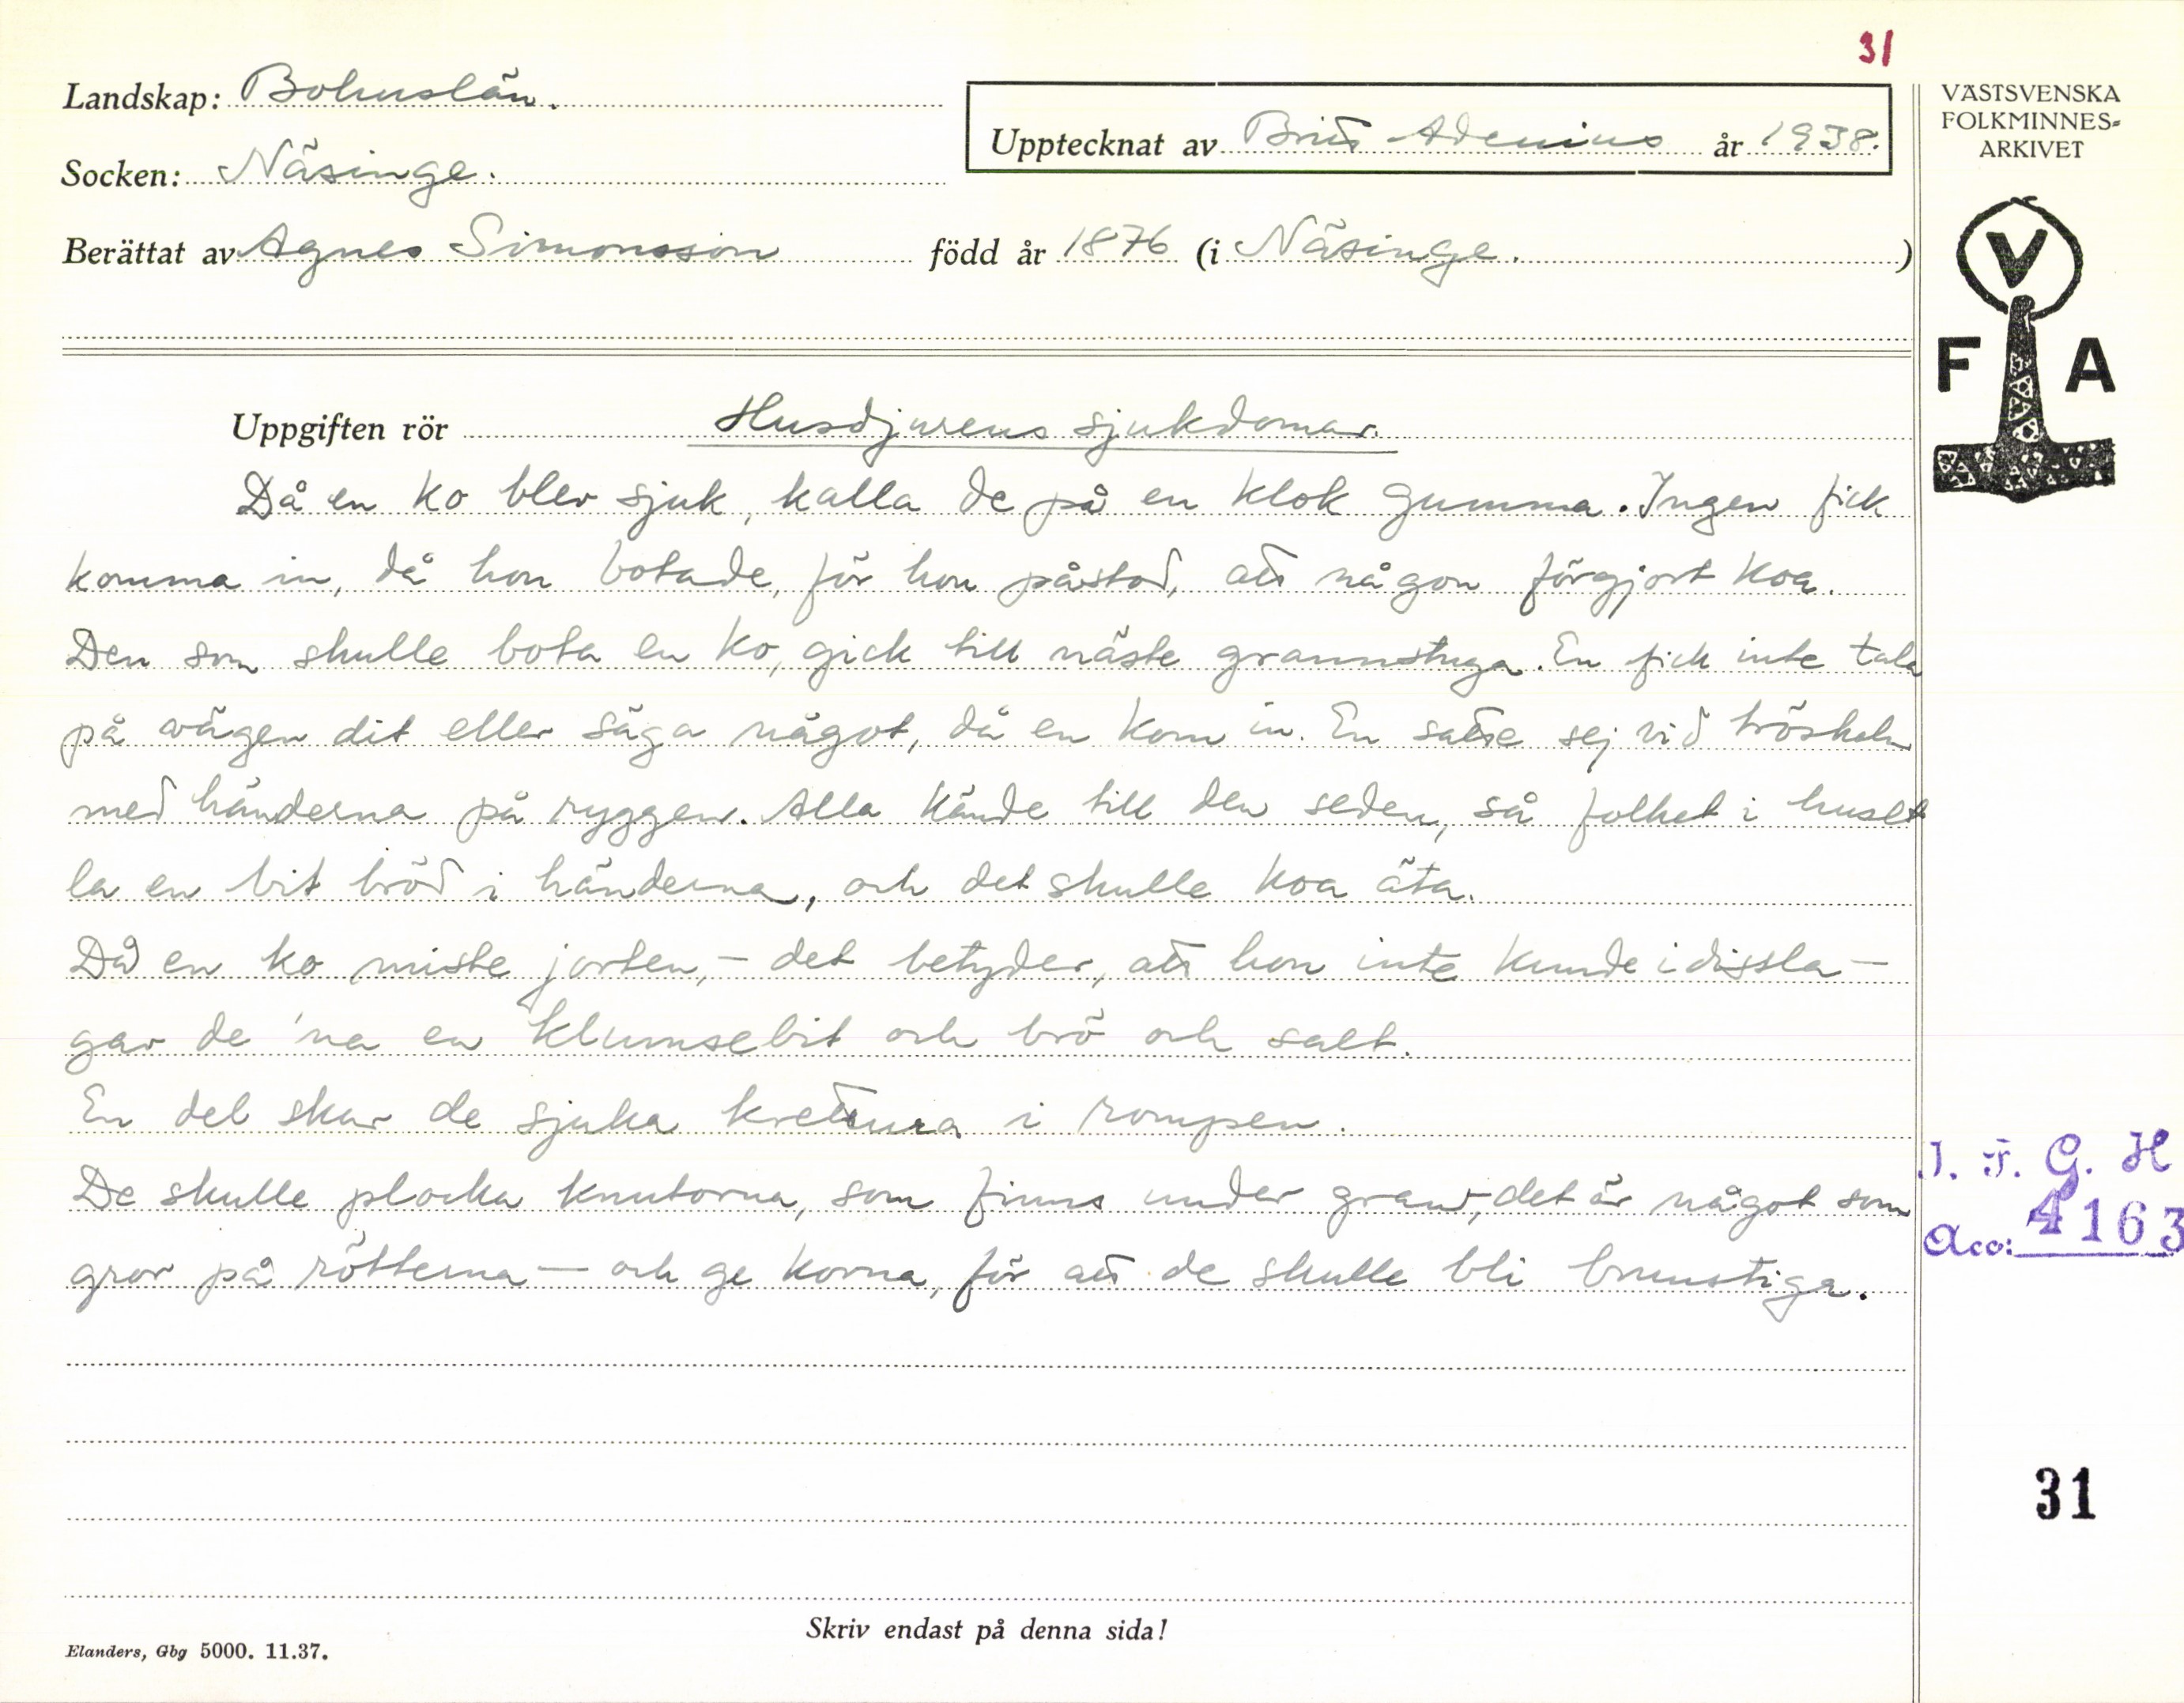 31
Landskap: Bohuslän.
Upptecknat av Britt Adenius år 1938.
Socken: Näsinge.
Berättat av Agnes Simonsson född år 1876 (i Näsinge. )
VÄSTSVENSKA
FOLKMINNES-
ARKIVET
V
F A
Uppgiften rör Husdjurens sjukdomar.
Då en ko blev sjuk, kalla de på en klok gumma. Ingen fick
komma in, då hon botade, för hon påstod, att någon förgjort koa.
Den som skulle bota en ko, gick till näste grannstuga. En fick inte tala
på vägen dit eller säga något, då en kom in. En satte sej vid tröskeln
med händerna på ryggen. Alla kände till den seden, så folket i huset
la en bit bröd i händerna, och det skulle koa äta.
Då en ko miste jorten, - det betyder, att hon inte kunde idissla -
gav de 'na en klumsebit och brö och salt.
En del skar de sjuka kretura i rompen.
De skulle plocka knutorna, som finns under gran, det är något som
gror på rötterna - och ge korna, för att de skulle bli brunstiga.
I. F. G. H
Acc: 4163
31
Skriv endast på denna sida!
Elanders, Gbg 5000. 11.37.